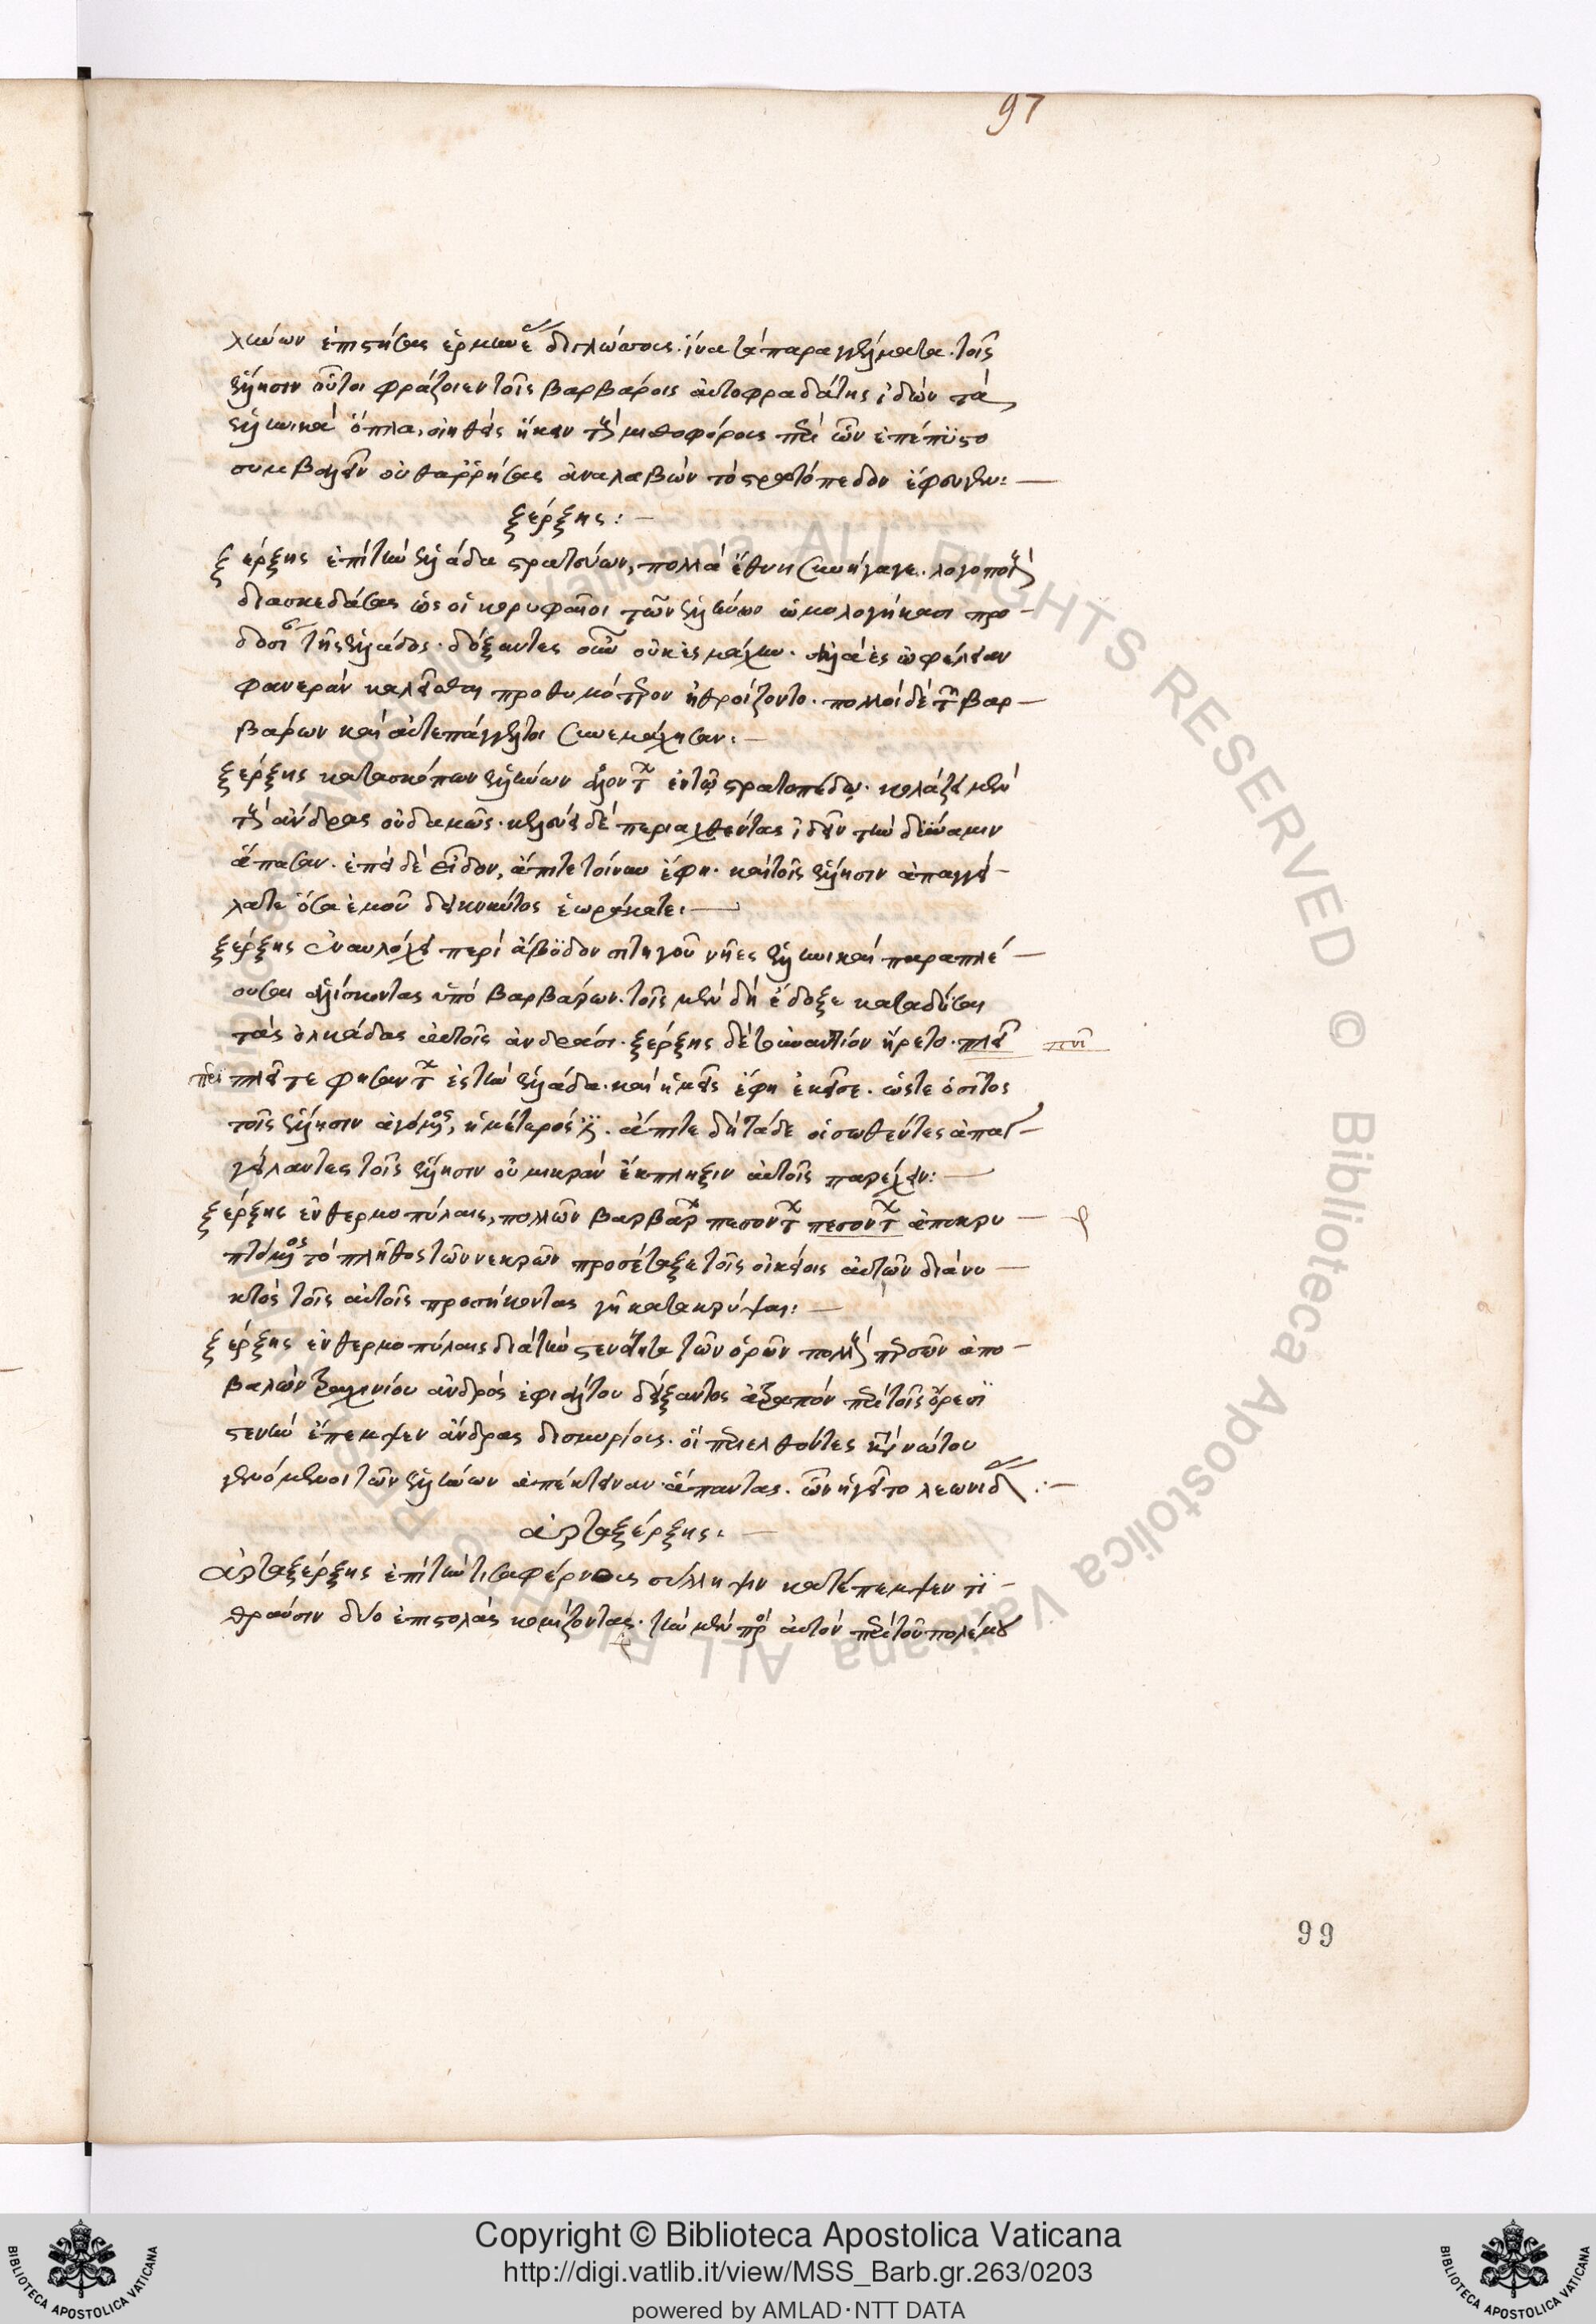 97
λλήνων ἐπιστήσας ἑρμηνεῖς διγλώσσους. ἵνα τὰ παραγγέλματα. τοῖς
ἕλλησιν οὗτοι φράζοιεν τοῖς βαρβάροις αὐτοφραδάτης ἰδὼν τὰ
ἑλληνικὰ ὅπλα, οἰηθεὶς ἥκειν τοὺς μισθοφόρους περὶ ὧν ἐπέπυστο
συμβαλεῖν οὐ θαρρήσας ἀναλαβὼν τὸ στρατόπεδον ἔφευγεν:
ξέρξης:
ξέρξης ἐπὶ τὴν ἑλλάδα στρατεύων, πολλὰ ἔθνη συνήγαγε. λογοποιοὺς
διασκεδάσας ὡς οἱ κορυφαῖοι τῶν ἑλλήνων ὡμολογήκασι προ
δοσίαν τῆς ἑλλάδος. δόξαντες οὖν οὐκ ἐς μάχην. ἀλλὰ ἐς ὠφέλειαν
φανερὰν καλεῖσθαι προθυμότερον ἠθροίζοντο. πολλοὶ δὲ τῶν βαρ
βάρων καὶ αὐτεπάγγελτοι συνεμάχησαν:
ξέρξης κατασκόπων ἑλλήνων ἁλόντων ἐν τῷ στρατοπέδῳ. κολάζει μὲν
τοὺς ἄνδρας οὐδαμῶς. κελεύει δὲ περιαχθέντας ἰδεῖν τὴν δύναμιν
ἅπασαν. ἐπεὶ δὲ εἶδον, ἄπιτε τοίνυν ἔφη. καὶ τοῖς ἕλλησιν ἀπαγγεί
λατε ὅσα ἐμοῦ δεικνύντος ἑωράκατε:
ξέρξης ἐναυλόχει περὶ ἄβυδον σιτηγοὶ νῆες ἑλληνικαὶ παραπλέ
ουσαι ἁλίσκονται ὑπὸ βαρβάρων. τοῖς μὲν δὴ ἔδοξε καταδῦσαι
τὰς ὁλκάδας αὐτοῖς ἀνδράσι. ξέρξης δὲ τοὐναντίον ἤρετο. πλεῖ
πλεῖτε φησάντων ἐς τὴν ἑλλάδα. καὶ ἡμεῖς ἔφη ἐκεῖσε. ὥστε ὁ σῖτος
τοῖς ἕλλησιν ἀγόμενος, ἡμέτερός ἐστι. ἄπιτε δὴ τάδε οἱ σωθέντες ἀπαγ
γείλαντες τοῖς ἕλλησιν οὐ μικρὰν ἔκπληξιν αὐτοῖς παρέχειν:
ξέρξης ἐν θερμοπύλαις, πολλῶν βαρβάρων πεσόντων πεσόντων ἀποκρυ
πτόμενος τὸ πλῆθος τῶν νεκρῶν προσέταξε τοῖς οἰκείοις αὐτῶν διὰ νυ
κτὸς τοῖς αὐτοῖς προσήκοντας γῇ κατακρύψαι:
ξέρξης ἐν θερμοπύλαις διὰ τὴν στενότητα τῶν ὁρῶν πολλοὺς περσῶν ἀπο
βαλὼν τραχινίου ἀνδρὸς ἐφιάλτου δείξαντος ἀτραπὸν περὶ τοῖς ὄρεσι
στενὴν ἔπεμψεν ἄνδρας δισμυρίους. οἱ περιελθόντες κατὰ νώτου
γενόμενοι τῶν ἑλλήνων ἀπέκτειναν ἅπαντας. ὧν ἡγεῖτο λεωνίδης:
ἀρταξέρξης:
ἀρταξέρξης ἐπὶ τὴν τισαφέρνους σύλληψιν κατέπεμψεν τι
θραύσην δύο ἐπιστολὰς κομίζοντας. τὴν μὲν πρὸς αὐτὸν περὶ τοῦ πολέμου
99
Copyright © Biblioteca Apostolica Vaticana
http://digi.vatlib.it/view/MSS_Barb.gr.263/0203
powered by AMLAD·NTT DATA